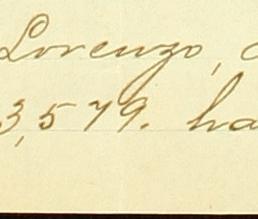 Lorenzo,
3,579. ha